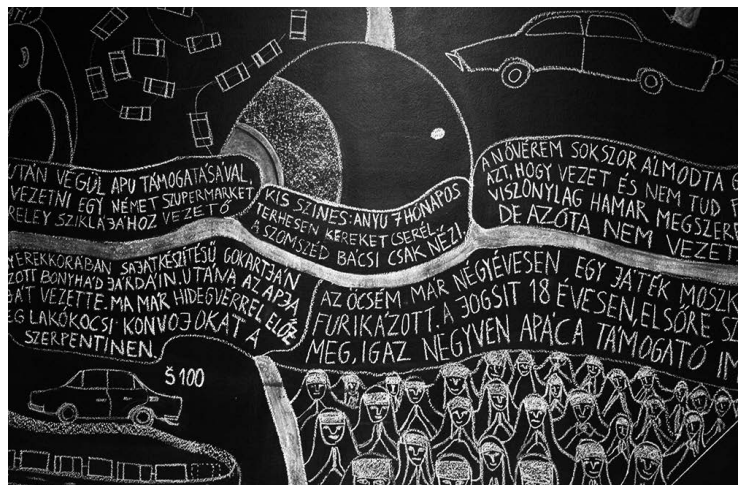 UTÁN VÉGÜL APU TÁMOGATÁSÁVAL,
VEZETNI EGY NÉMET SZUPERMARKET
RELEY SZIKLÁJÁHOZ VEZETŐ
KIS SZINES: ANYU 7 HÓNAPOS
TERHESEN KEREKET CSERÉL,
A SZOMSZÉD BÁCSI CSAK NÉZI
A NŐVÉREM SOKSZOR ÁLMODTA
AZT, HOGY VEZET ÉS NEM TUD
VISZONYLAG HAMAR MEGSZERE
DE AZÓTA NEM VEZET
YEREKKORÁBAN SAJÁTKÉSZÍTÉSŰ GOKARTJÁN
ZOTT BONYHÁD JÁRDÁIN. UTÁNA AZ APJA
ÁT VEZETTE. MA MÁR HIDEGVÉRREL ELŐZ
EG LAKÓKOCSI KONVOJOKAT A
SZERPENTINEN.
AZ ÖCSÉM MÁR NÉGYÉVESEN, EGY JÁTÉK MOSZK
FURIKÁZOTT. A JOGSIT 18 ÉVESEN, ELSŐRE SZ
MEG, IGAZ NEGYVEN APÁCA TÁMOGATÓ IM
Š 100